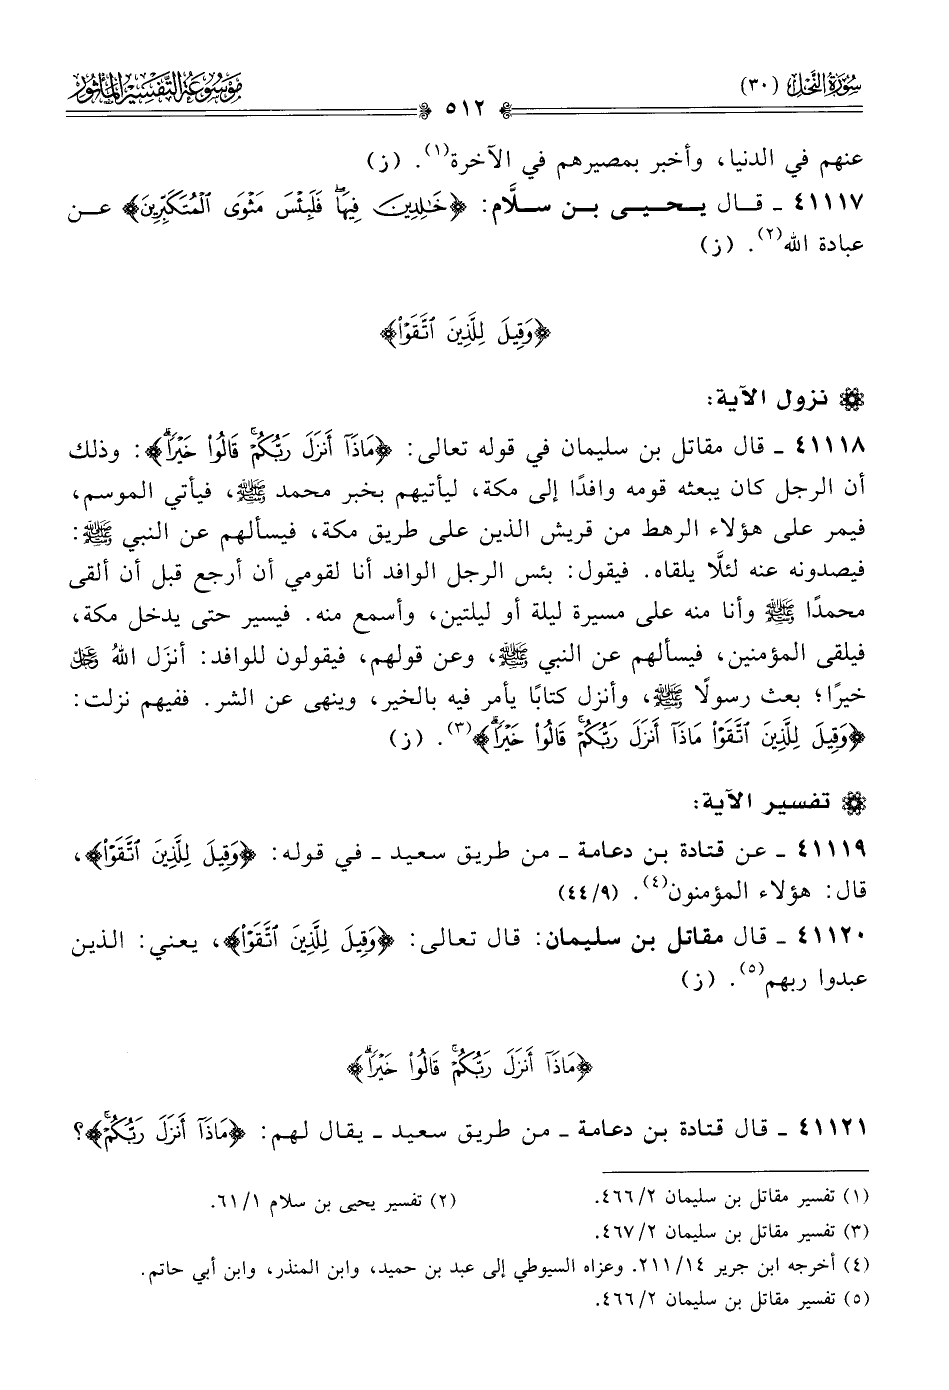 سُورَةُ النَّحْلِ (٣٠)
٥١٢
مَوْسُوعَةُ التَّفْسِيرِ المَأْثُورِ
عنهم في الدنيا، وأخبر بمصيرهم في الآخرة(١). (ز)
٤١١١٧ ـ قال يحيى بن سلَّام: ﴿خَٰلِدِينَ فِيهَاۖ فَلَبِئۡسَ مَثۡوَى ٱلۡمُتَكَبِّرِينَ﴾ عن
عبادة الله(٢). (ز)
﴿وَقِيلَ لِلَّذِينَ ٱتَّقَوۡاْ﴾
نزول الآية:
٤١١١٨ ـ قال مقاتل بن سليمان في قوله تعالى: ﴿مَاذَآ أَنزَلَ رَبُّكُمۡۚ قَالُواْ خَيۡرٗاۗ﴾: وذلك
أن الرجل كان يبعثه قومه وافدًا إلى مكة، ليأتيهم بخبر محمد ﷺ، فيأتي الموسم،
فيمر على هؤلاء الرهط من قريش الذين على طريق مكة، فيسألهم عن النبي ﷺ:
فيصدونه عنه لئلَّا يلقاه. فيقول: بئس الرجل الوافد أنا لقومي أن أرجع قبل أن ألقى
محمدًا ﷺ وأنا منه على مسيرة ليلة أو ليلتين، وأسمع منه. فيسير حتى يدخل مكة،
فيلقى المؤمنين، فيسألهم عن النبي ﷺ، وعن قولهم، فيقولون للوافد: أنزَل اللهُ عز وجل
خيرًا؛ بعث رسولًا ﷺ، وأنزل كتابًا يأمر فيه بالخير، وينهى عن الشر. ففيهم نزلت:
﴿وَقِيلَ لِلَّذِينَ ٱتَّقَوۡاْ مَاذَآ أَنزَلَ رَبُّكُمۡۚ قَالُواْ خَيۡرٗاۗ﴾(٣). (ز)
تفسير الآية:
٤١١١٩ ـ عن قتادة بن دعامة ـ من طريق سعيد ـ في قوله: ﴿وَقِيلَ لِلَّذِينَ ٱتَّقَوۡاْ﴾،
قال: هؤلاء المؤمنون(٤). (٤٤/٩)
٤١١٢٠ ـ قال مقاتل بن سليمان: قال تعالى: ﴿وَقِيلَ لِلَّذِينَ ٱتَّقَوۡاْ﴾، يعني: الذين
عبدوا ربهم(٥). (ز)
﴿مَاذَآ أَنزَلَ رَبُّكُمۡۚ قَالُواْ خَيۡرٗاۗ﴾
٤١١٢١ ـ قال قتادة بن دعامة ـ من طريق سعيد ـ يقال لهم: ﴿مَاذَآ أَنزَلَ رَبُّكُمۡۚ﴾؟
(١) تفسير مقاتل بن سليمان ٤٦٦/٢.
(٢) تفسير يحيى بن سلام ٦١/١.
(٣) تفسير مقاتل بن سليمان ٤٦٧/٢.
(٤) أخرجه ابن جرير ٢١١/١٤. وعزاه السيوطي إلى عبد بن حميد، وابن المنذر، وابن أبي حاتم.
(٥) تفسير مقاتل بن سليمان ٤٦٦/٢.